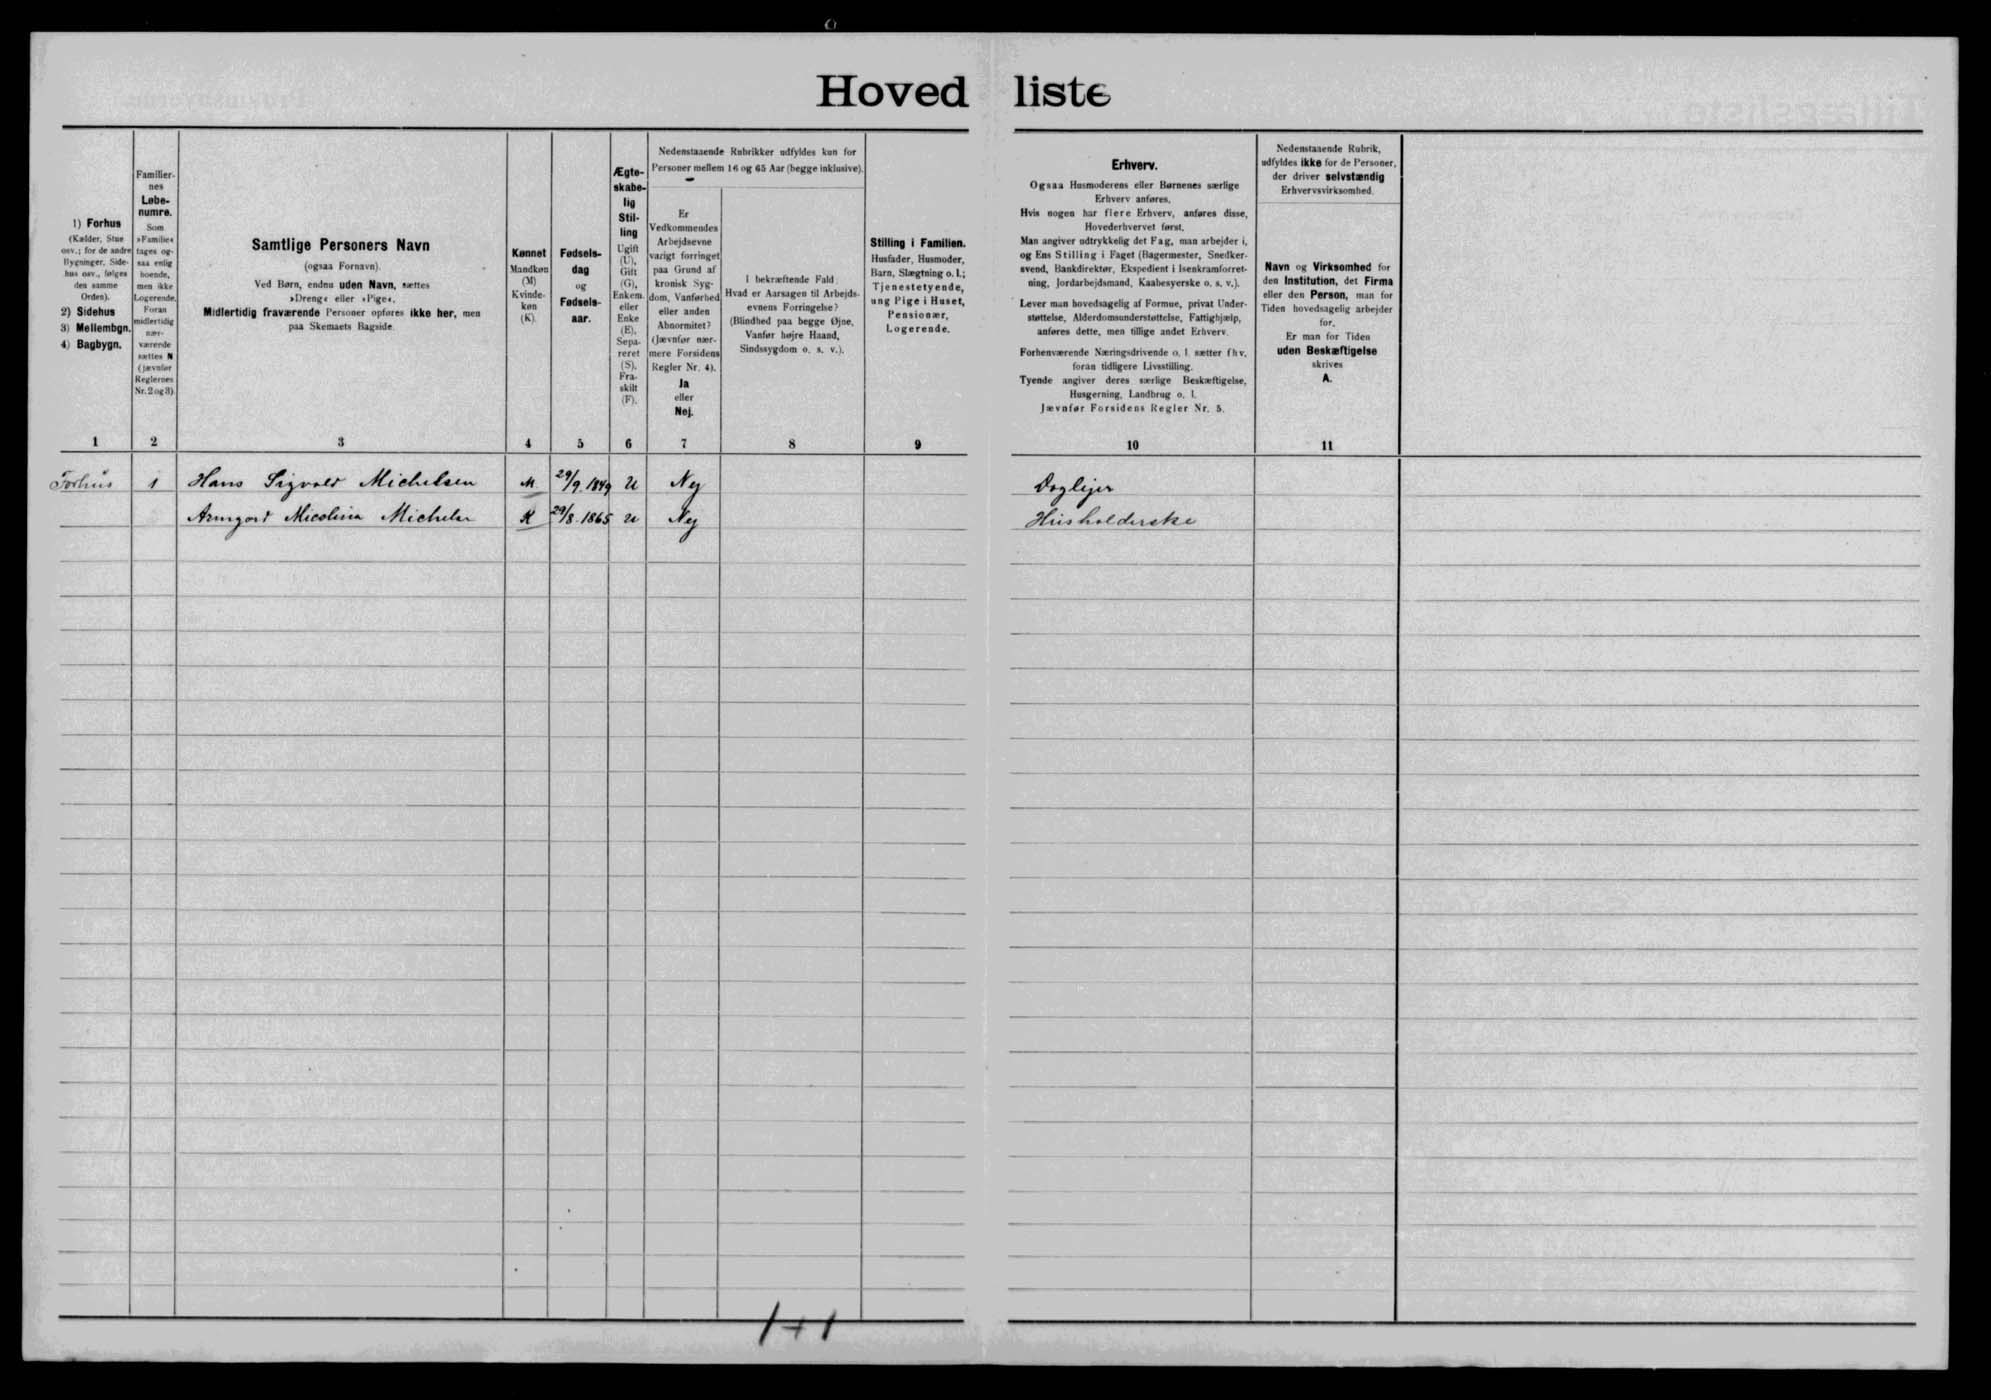 Hovedliste
1) Forhus
(Kælder, Stue
osv.; for de andre
Bygninger, Side-
hus osv., følges
den samme
Orden).
2) Sidehus
3) Mellembgn.
4) Bagbygn.
Familier-
nes
Løbe-
numre.
Som
»Familie«
tages og-
saa enlig
boende,
men ikke
Logerende.
Foran
midlertidig
nær-
værende
sættes N
(jævnfør
Reglernes
Nr. 2 og 3)
Samtlige Personers Navn
(ogsaa Fornavn).
Ved Børn, endnu uden Navn, sættes
»Dreng« eller »Pige«.
Midlertidig fraværende Personer opføres ikke her, men
paa Skemaets Bagside.
Kønnet
Mandkøn
(M)
Kvinde-
køn
(K).
Fødsels-
dag
og
Fødsels-
aar.
Ægte-
skabe-
lig
Stil-
ling
Ugift
(U),
Gift
(G),
Enkem.
eller
Enke
(E),
Sepa-
reret
(S),
Fra-
skilt
(F).
Nedenstaaende Rubrikker udfyldes kun for
Personer mellem 16 og 65 Aar (begge inklusive).
Er
Vedkommendes
Arbejdsevne
varigt forringet
paa Grund af
kronisk Syg-
dom, Vanførhed
eller anden
Abnormitet?
(Jævnfør nær-
mere Forsidens
Regler Nr. 4).
Ja
eller
Nej.
I bekræftende Fald:
Hvad er Aarsagen til Arbejds-
evnens Forringelse?
(Blindhed paa begge Øjne,
Vanfør højre Haand,
Sindssygdom o. s. v.).
Stilling i Familien.
Husfader, Husmoder,
Barn, Slægtning o. l.;
Tjenestetyende,
ung Pige i Huset,
Pensionær,
Logerende.
Erhverv.
Ogsaa Husmoderens eller Børnenes særlige
Erhverv anføres.
Hvis nogen har flere Erhverv, anføres disse,
Hovederhvervet først.
Man angiver udtrykkelig det Fag, man arbejder i,
og Ens Stilling i Faget (Bagermester, Snedker-
svend, Bankdirektør, Ekspedient i Isenkramforret-
ning, Jordarbejdsmand, Kaabesyerske o. s. v.).
Lever man hovedsagelig af Formue, privat Under-
støttelse, Alderdomsunderstøttelse, Fattighjælp,
anføres dette, men tillige andet Erhverv.
Forhenværende Næringsdrivende o. l. sætter fhv.
foran tidligere Livsstilling.
Tyende angiver deres særlige Beskæftigelse,
Husgerning, Landbrug o. l.
Jævnfør Forsidens Regler Nr. 5.
Nedenstaaende Rubrik,
udfyldes ikke for de Personer,
der driver selvstændig
Erhvervsvirksomhed.
Navn og Virksomhed for
den Institution, det Firma
eller den Person, man for
Tiden hovedsagelig arbejder
for.
Er man for Tiden
uden Beskæftigelse
skrives
A.
1 2 3 4 5 6 7 8 9 10 11
Forhus 1 Hans Sigvald Michelsen M 29/9.1849 U Nej Daglejer
Armgard Micolina Michelsen K 29/8.1865 U Nej Husholderske
1+1